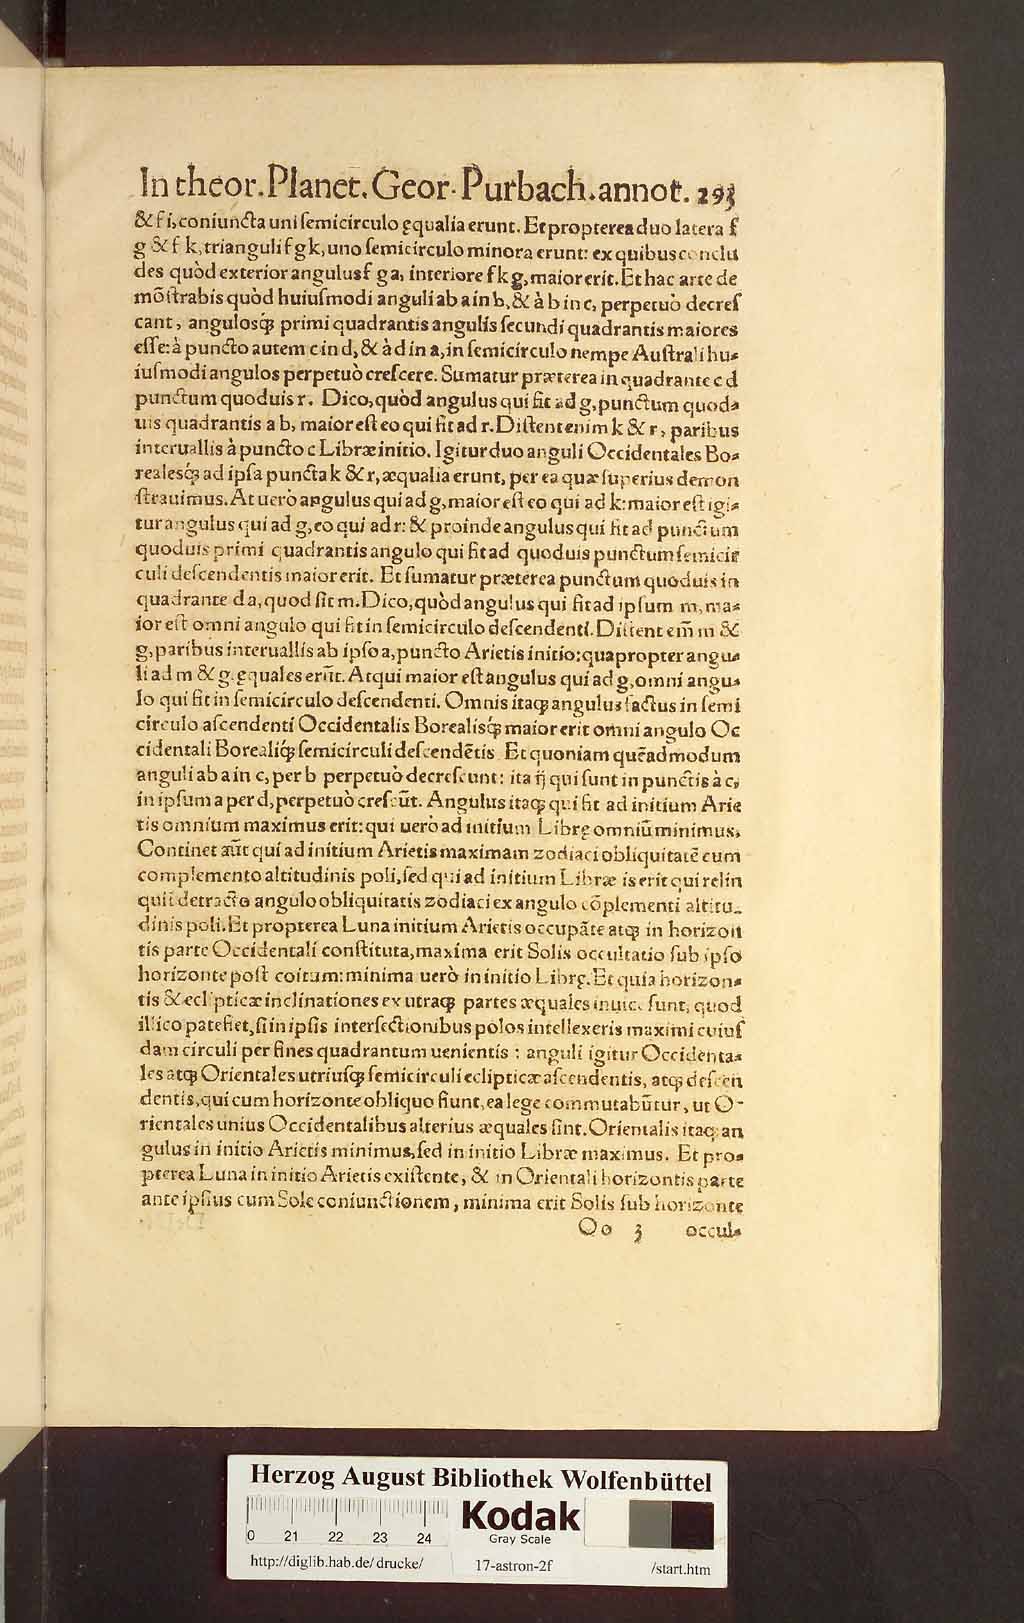 In theor. Planet. Geor. Purbach. annot. 293
& f i, coniuncta uni semicirculo ęqualia erunt. Et propterea duo latera f
g & f k, trianguli f g k, uno semicirculo minora erunt: ex quibus conclu
des quòd exterior angulus f g a, interiore f k g, maior erit. Et hac arte de
mõstrabis quòd huiusmodi anguli ab a in b, & à b in c, perpetuò decres
cant, angulosq́; primi quadrantis angulis secundi quadrantis maiores
esse: à puncto autem c in d, & à d in a, in semicirculo nempe Australi hu-
iusmodi angulos perpetuò crescere. Sumatur præterea in quadrante c d
punctum quoduis r. Dico, quòd angulus qui fit ad g, punctum quod-
uis quadrantis a b, maior est eo qui fit ad r. Distent enim k & r, paribus
interuallis à puncto c Libræ initio. Igitur duo anguli Occidentales Bo-
realesq́; ad ipsa puncta k & r, æqualia erunt, per ea quæ superius demon
strauimus. At uerò angulus qui ad g, maior est eo qui ad k: maior est igi-
tur angulus qui ad g, eo qui ad r: & proinde angulus qui fit ad punctum
quoduis primi quadrantis angulo qui fit ad quoduis punctum semicir
culi descendentis maior erit. Et sumatur præterea punctum quoduis in
quadrante d a, quod sit m. Dico, quòd angulus qui fit ad ipsum m, ma-
ior est omni angulo qui fit in semicirculo descendenti. Distent em̃ m &
g, paribus interuallis ab ipso a, puncto Arietis initio: quapropter angu-
li ad m & g. ęquales erũt. Atqui maior est angulus qui ad g, omni angu-
lo qui fit in semicirculo descendenti. Omnis itaq; angulus factus in semi
circulo ascendenti Occidentalis Borealisq́; maior erit omni angulo Oc
cidentali Borealiq́; semicirculi descendẽtis. Et quoniam quẽadmodum
anguli ab a in c, per b perpetuò decrescunt: ita ij qui sunt in punctis à c,
in ipsum a per d, perpetuò crescũt. Angulus itaq; qui fit ad initium Arie
tis omnium maximus erit: qui uerò ad initium Librę omniũ minimus,
Continet aũt qui ad initium Arietis maximam zodiaci obliquitatẽ cum
complemento altitudinis poli, sed qui ad initium Libræ is erit qui relin
quit detracto angulo obliquitatis zodiaci ex angulo cõplementi altitu-
dinis poli. Et propterea Luna initium Arietis occupãte atq; in horizon
tis parte Occidentali constituta, maxima erit Solis occultatio sub ipso
horizonte post coitum: minima uerò in initio Librę. Et quia horizon-
tis & eclipticæ inclinationes ex utraq; partes æquales inuicẽ sunt, quod
illico patefiet, si in ipsis intersectionibus polos intellexeris maximi cuius
dam circuli per fines quadrantum uenientis: anguli igitur Occidenta-
les atq; Orientales utriusq; semicirculi eclipticæ ascendentis, atq; descen
dentis, qui cum horizonte obliquo fiunt, ea lege commutabũtur, ut O-
rientales unius Occidentalibus alterius æquales sint. Orientalis itaq; an
gulus in initio Arietis minimus, sed in initio Libræ maximus. Et pro-
pterea Luna in initio Arietis existente, & in Orientali horizontis parte
ante ipsius cum Sole coniunctionem, minima erit Solis sub horizonte
Oo 3 occul-
Herzog August Bibliothek Wolfenbüttel
0 21 22 23 24
Kodak
Gray Scale
http://diglib.hab.de/drucke/ 17-astron-2f /start.htm